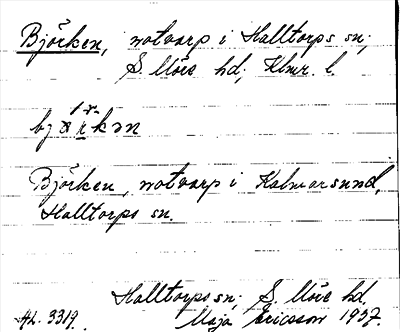 Björken, notvarp i Halltorps sn;
S. Möre hd; Klmr. l.
Björken, notvarp i Kalmarsund,
Halltorps sn.
Halltorps sn; S. Möre hd.
AL. 3319. Maja Ericsson 1937.